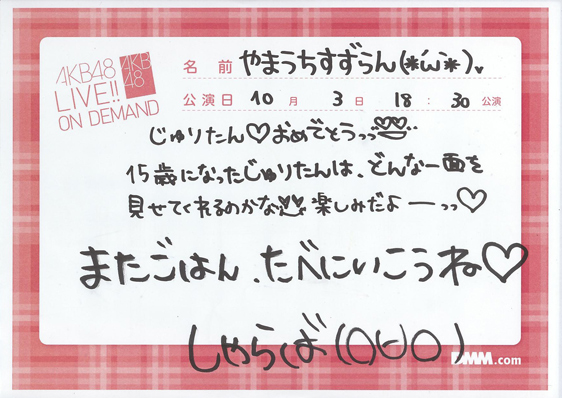 AKB48
LIVE!!
ON DEMAND
AKB
48
名前 やまうちすずらん(*´ω`*)。
公演日 10月 3日 18:30公演
じゅりたん♡おめでとうっっ
15歳になったじゅりたんは、どんな一面を
見せてくれるのかな 楽しみだよーっっ♡
またごはん、たべにいこうね♡
しゃらば(O∀O)
DMM.com